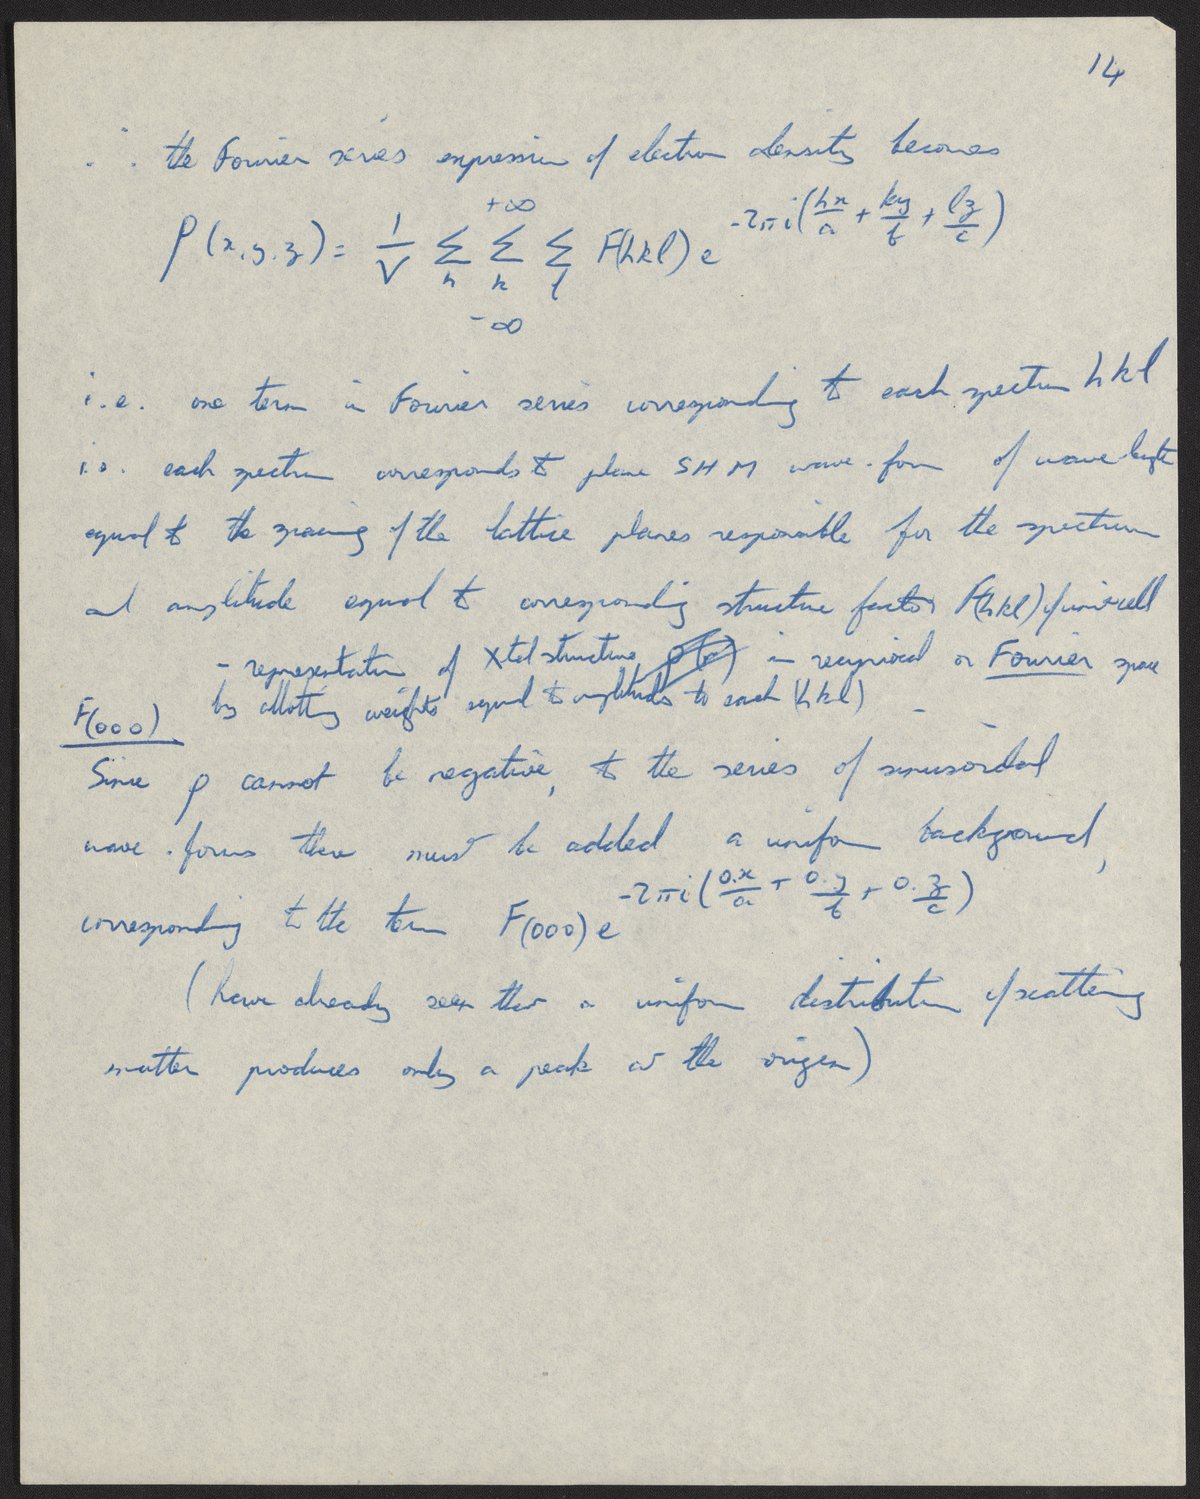 14
∴ the Fourier series expression of electron density becomes
ρ(x,y,z) = 1/V +∞ Σh Σk Σl −∞ F(hkl) e^−2πi(hx/a + ky/b + lz/c)
i.e. one term in Fourier series corresponding to each spectrum hkl
i.e. each spectrum corresponds to plane SHM wave-form of wave length
equal to the spacing of the lattice planes responsible for the spectrum
and amplitude equal to corresponding structure factor F(hkl) / unit cell
– representation of Xtal structure ρ(r) in reciprocal or Fourier space
by allotting weights equal to amplitudes to each (hkl)
F(000)
Since ρ cannot be negative, to the series of sinusoidal
wave-forms there must be added a uniform background,
corresponding to the term F(000) e^−2πi(0.x/a + 0.y/b + 0.z/c)
(have already seen that a uniform distribution of scattering
matter produces only a peak at the origin)